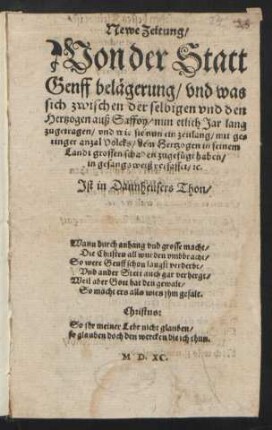 Newe Zeitung/
Von der Statt
Genff belägerung/ vnd was
sich zwischen der selbigen vnd den
Hertzogen auß Saffoy/ nun etlich Jar lang
zugetragen/ vnd wie sie nun ein zeitlang/ mit ges
ringer anzal Volcks/ dem Hertzogen in seinem
Landt grossen schaden zugefügt haben/
in gesangsweiß verfasset/ ꝛc.
Ist in Dannheüsers Thon/
Wann durch anhang vnd grosse macht/
Die Christen all wurden vmbbracht/
So were Genff schon langst verderbt/
Vnd ander Stett auch gar verhergt/
Weil aber Gott hat den gewalt/
So macht ers alls wies jhm gefalt.
Christus:
So jhr meiner Lehr nicht glauben/
so glauben doch den wercken die ich thun.
M D. XC.